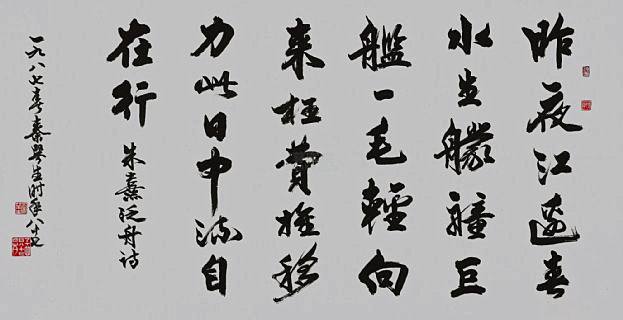 昨夜江邊春
水生艨艟巨
艦一毛輕向
来枉費推移
力此日中流自
在行
朱熹泛舟诗
一九八七春秦咢生时年八十七